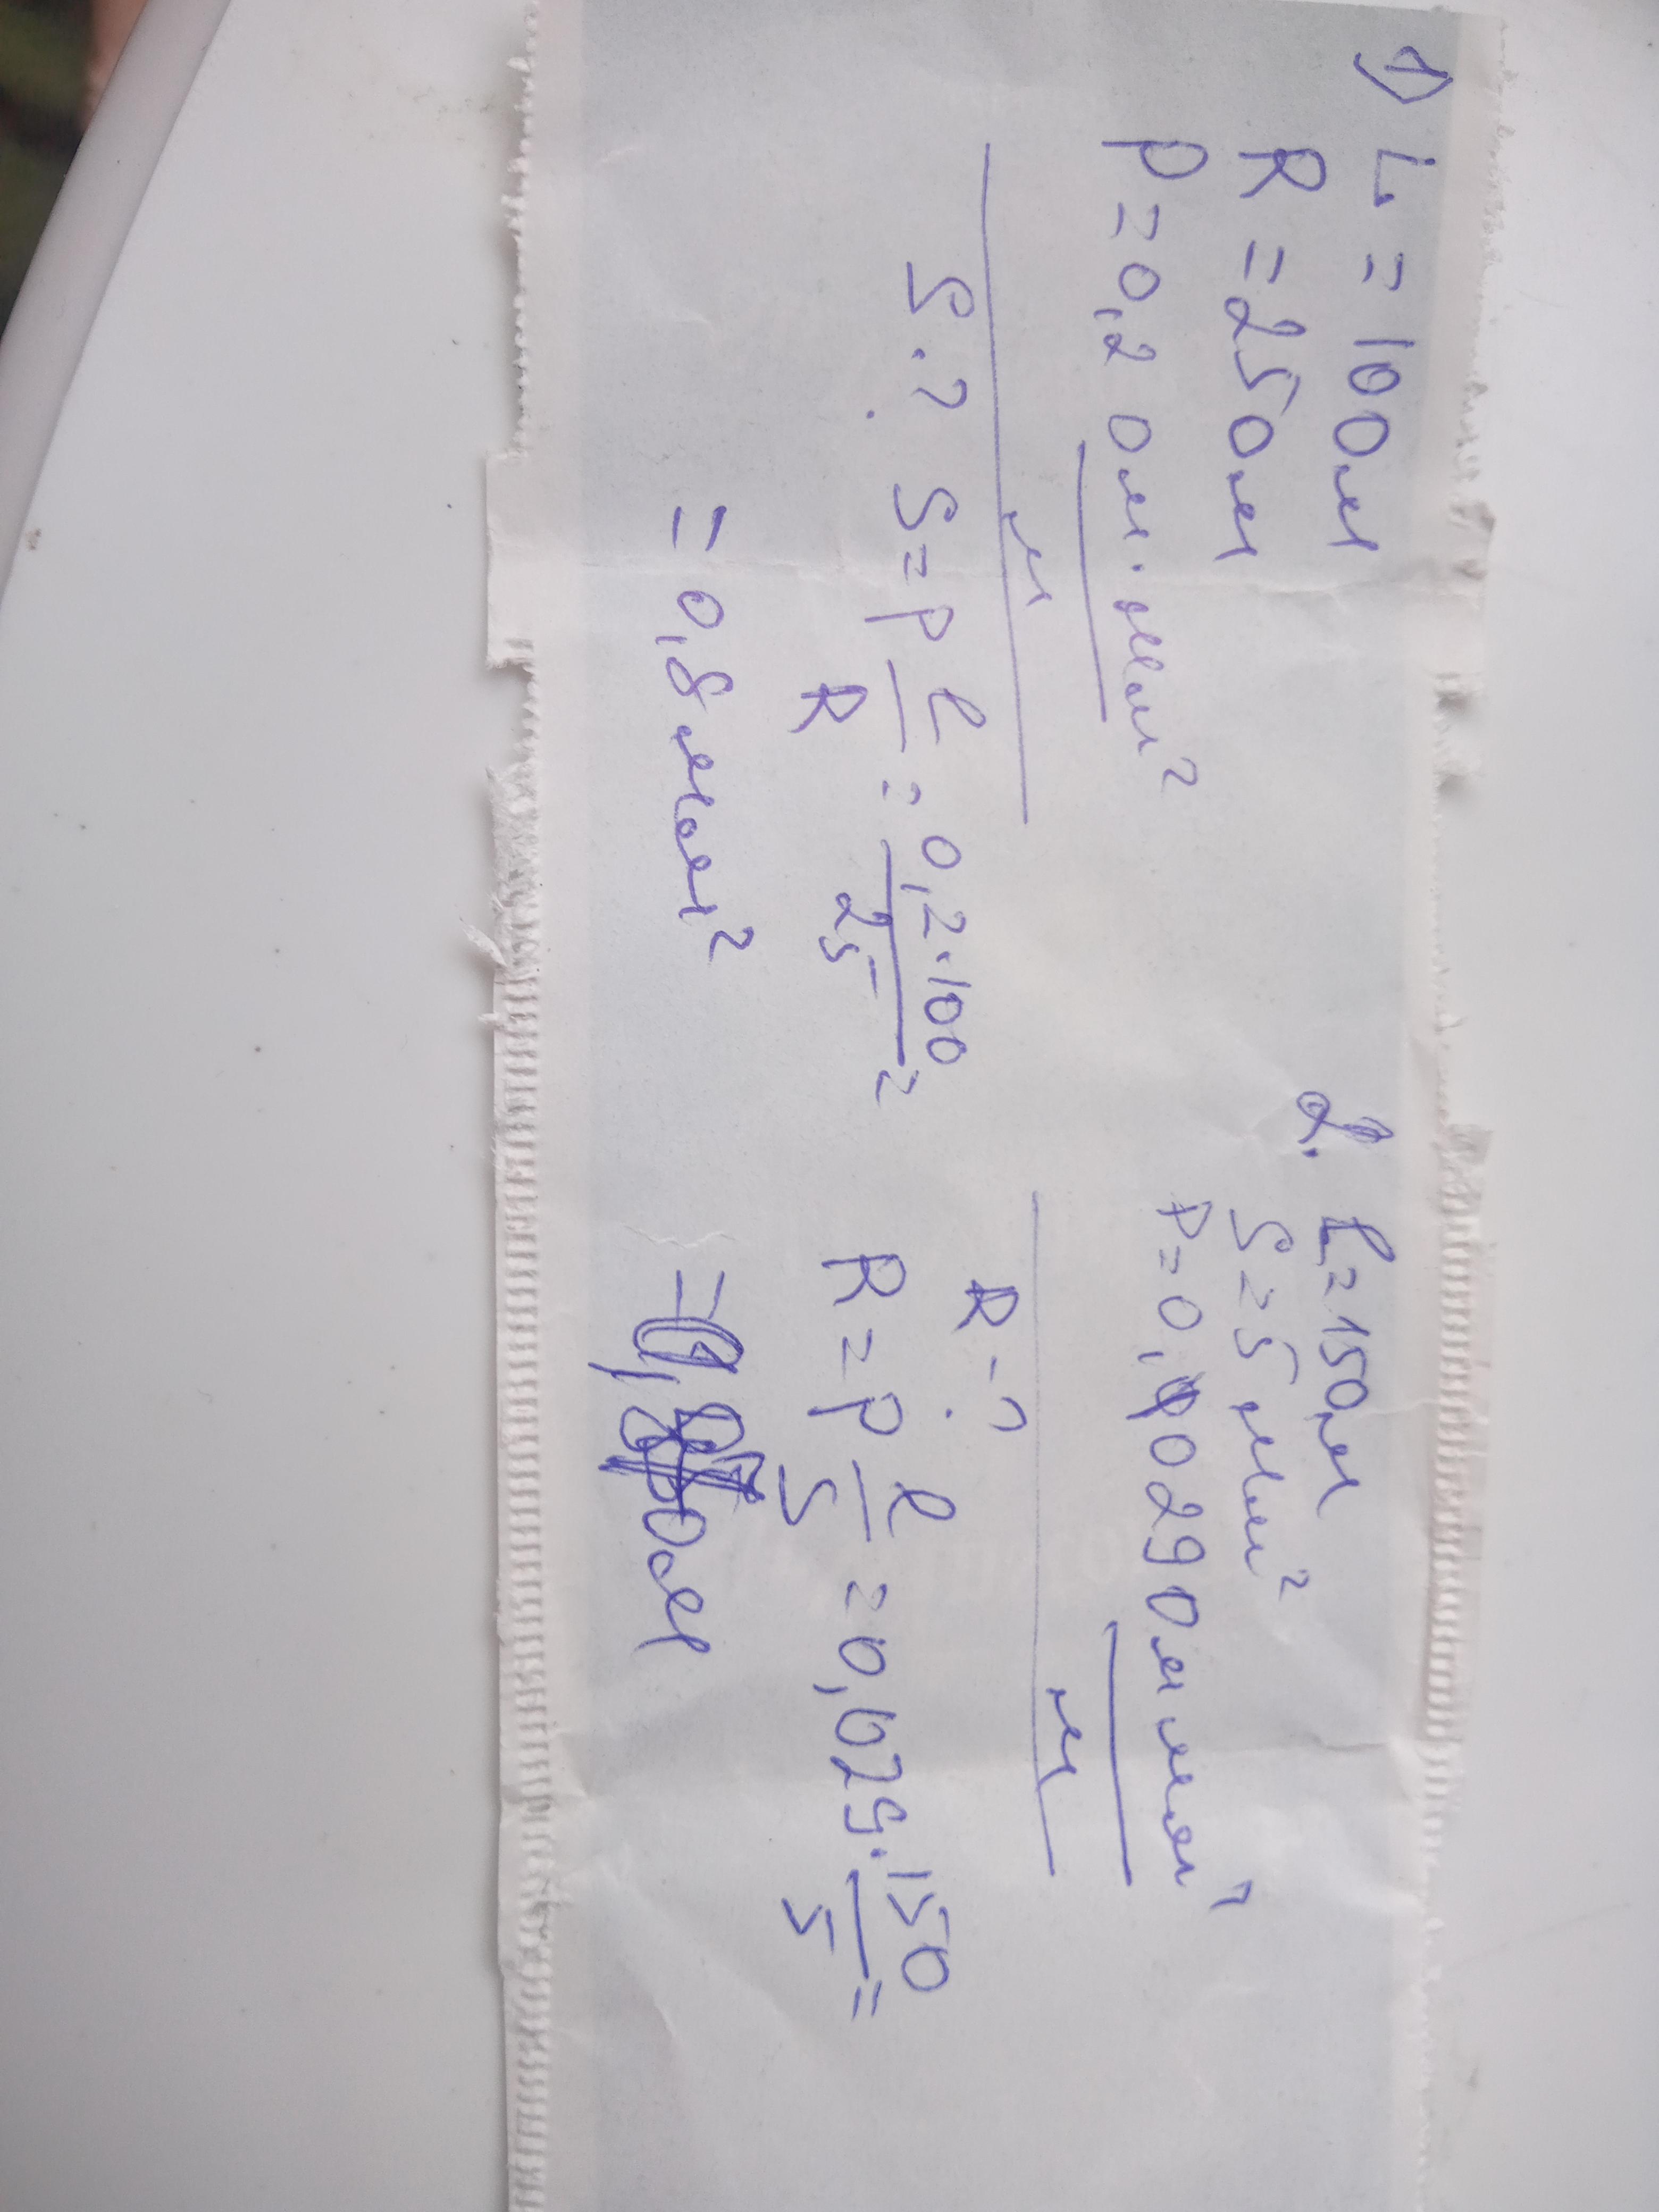 1) L = 100м
R = 25Ом
ρ = 0,2 Ом·мм²
м
S-? S = ρ l/R = 0,2·100/25 =
= 0,8 мм²
2. l = 150м
S = 5 мм²
ρ = 0,029 Ом мм²
м
R-?
R = ρ l/S = 0,029·150/5 =
= Ом